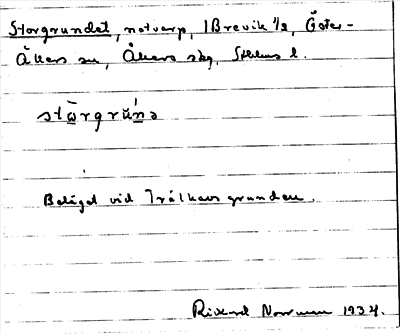 Storgrundet, notvarp, 1 Brevik 1/2, Öster-
Åkers sn, Åkers skg, Sthlms l.
stòrgrún̄ə
Beläget vid Trälhavs grunden.
Rikard Norrman 1934.